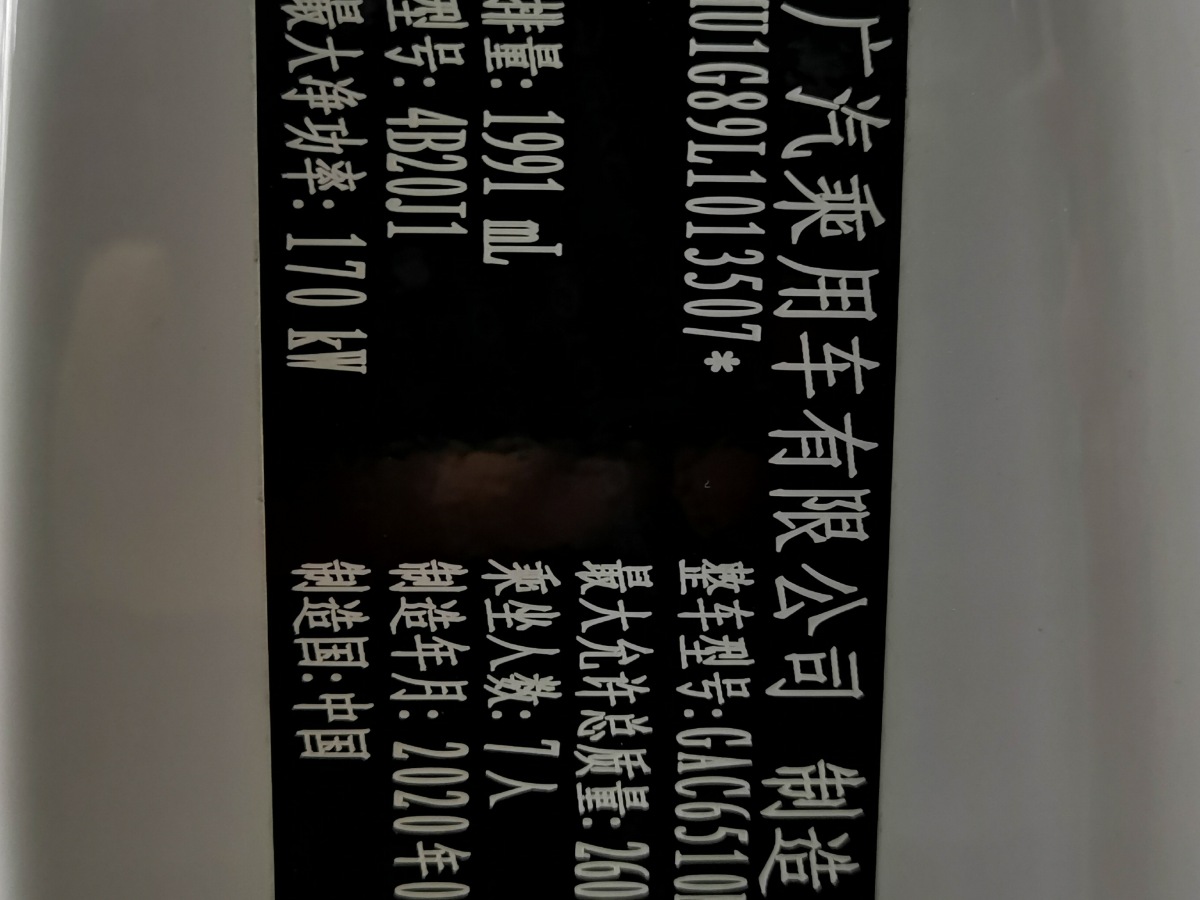 广汽乘用车有限公司 制造
MU1G89L1013507*
整车型号:GAC6510
最大允许总质量:260
排量:1991 mL
乘坐人数:7人
型号:4B20J1
制造年月:2020年0
最大净功率:170 kW
制造国:中国